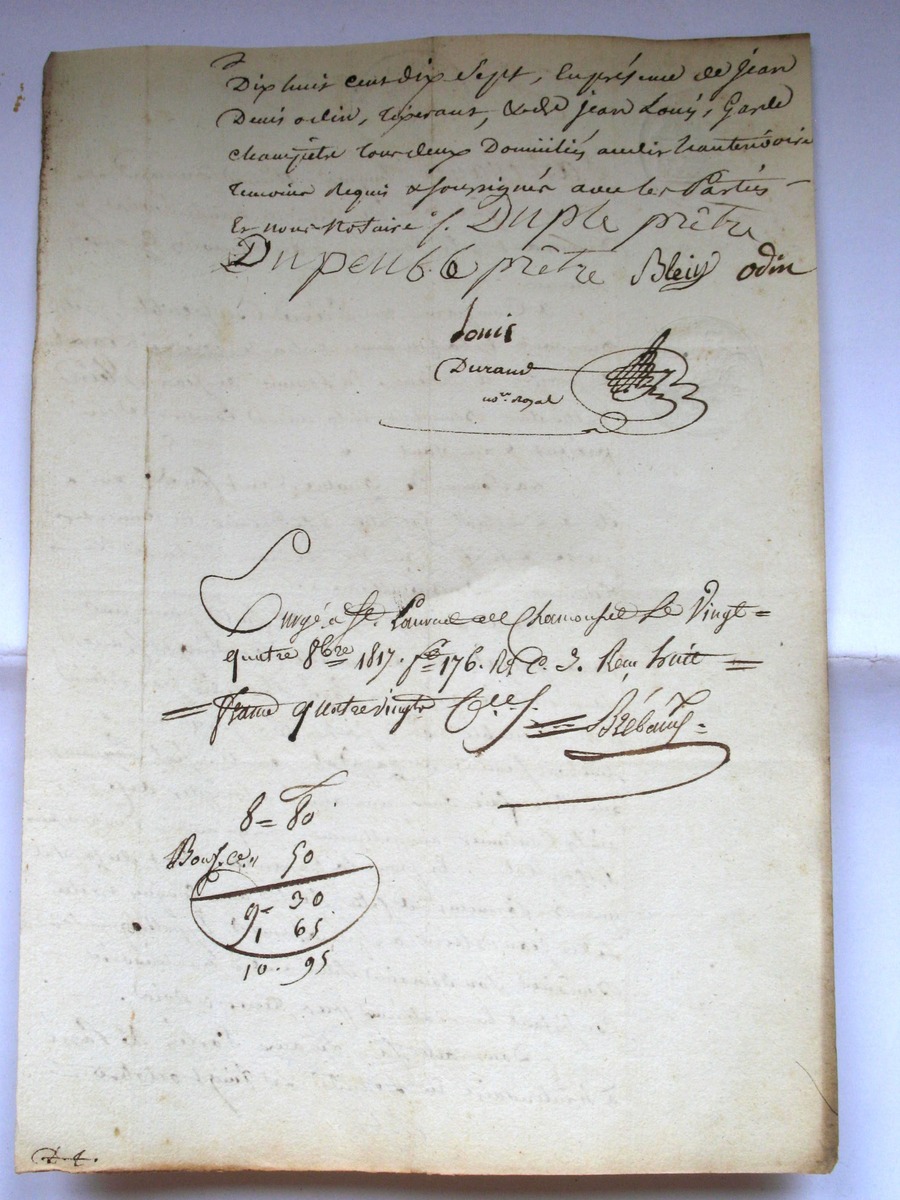 Dix huit cent dix Sept, En présence de Jean
Denis odin, tisserant, & de Jean Louis, Garde
champêtre tous deux Domiciliés audit hauterivoire
temoins Requis & soussignés avec les Parties
Et nous Notaire /. Duple prêtre
Dupeubl6 prêtre Blein odin
Louis
Durand
no.re Royal
Enregé. a St. Laurent de Chamousset Le Vingt =
quatre 8bre 1817. fo 176. Ro C. 3. Reçu huit =
= francs quatrevingts C.es = Brébaud =
8 = 80
50
9 - 30
1 65
10 . 95